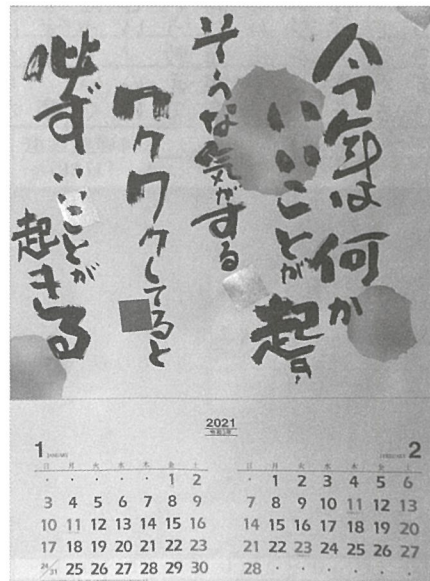 今年は何か
いいことが起き
そうな気がする
ワクワクしてると
必ずいいことが
起きる
2021
令和3年
1 JANUARY
日 月 火 水 木 金 土
1 2
3 4 5 6 7 8 9
10 11 12 13 14 15 16
17 18 19 20 21 22 23
24/31 25 26 27 28 29 30
FEBRUARY 2
日 月 火 水 木 金 土
1 2 3 4 5 6
7 8 9 10 11 12 13
14 15 16 17 18 19 20
21 22 23 24 25 26 27
28